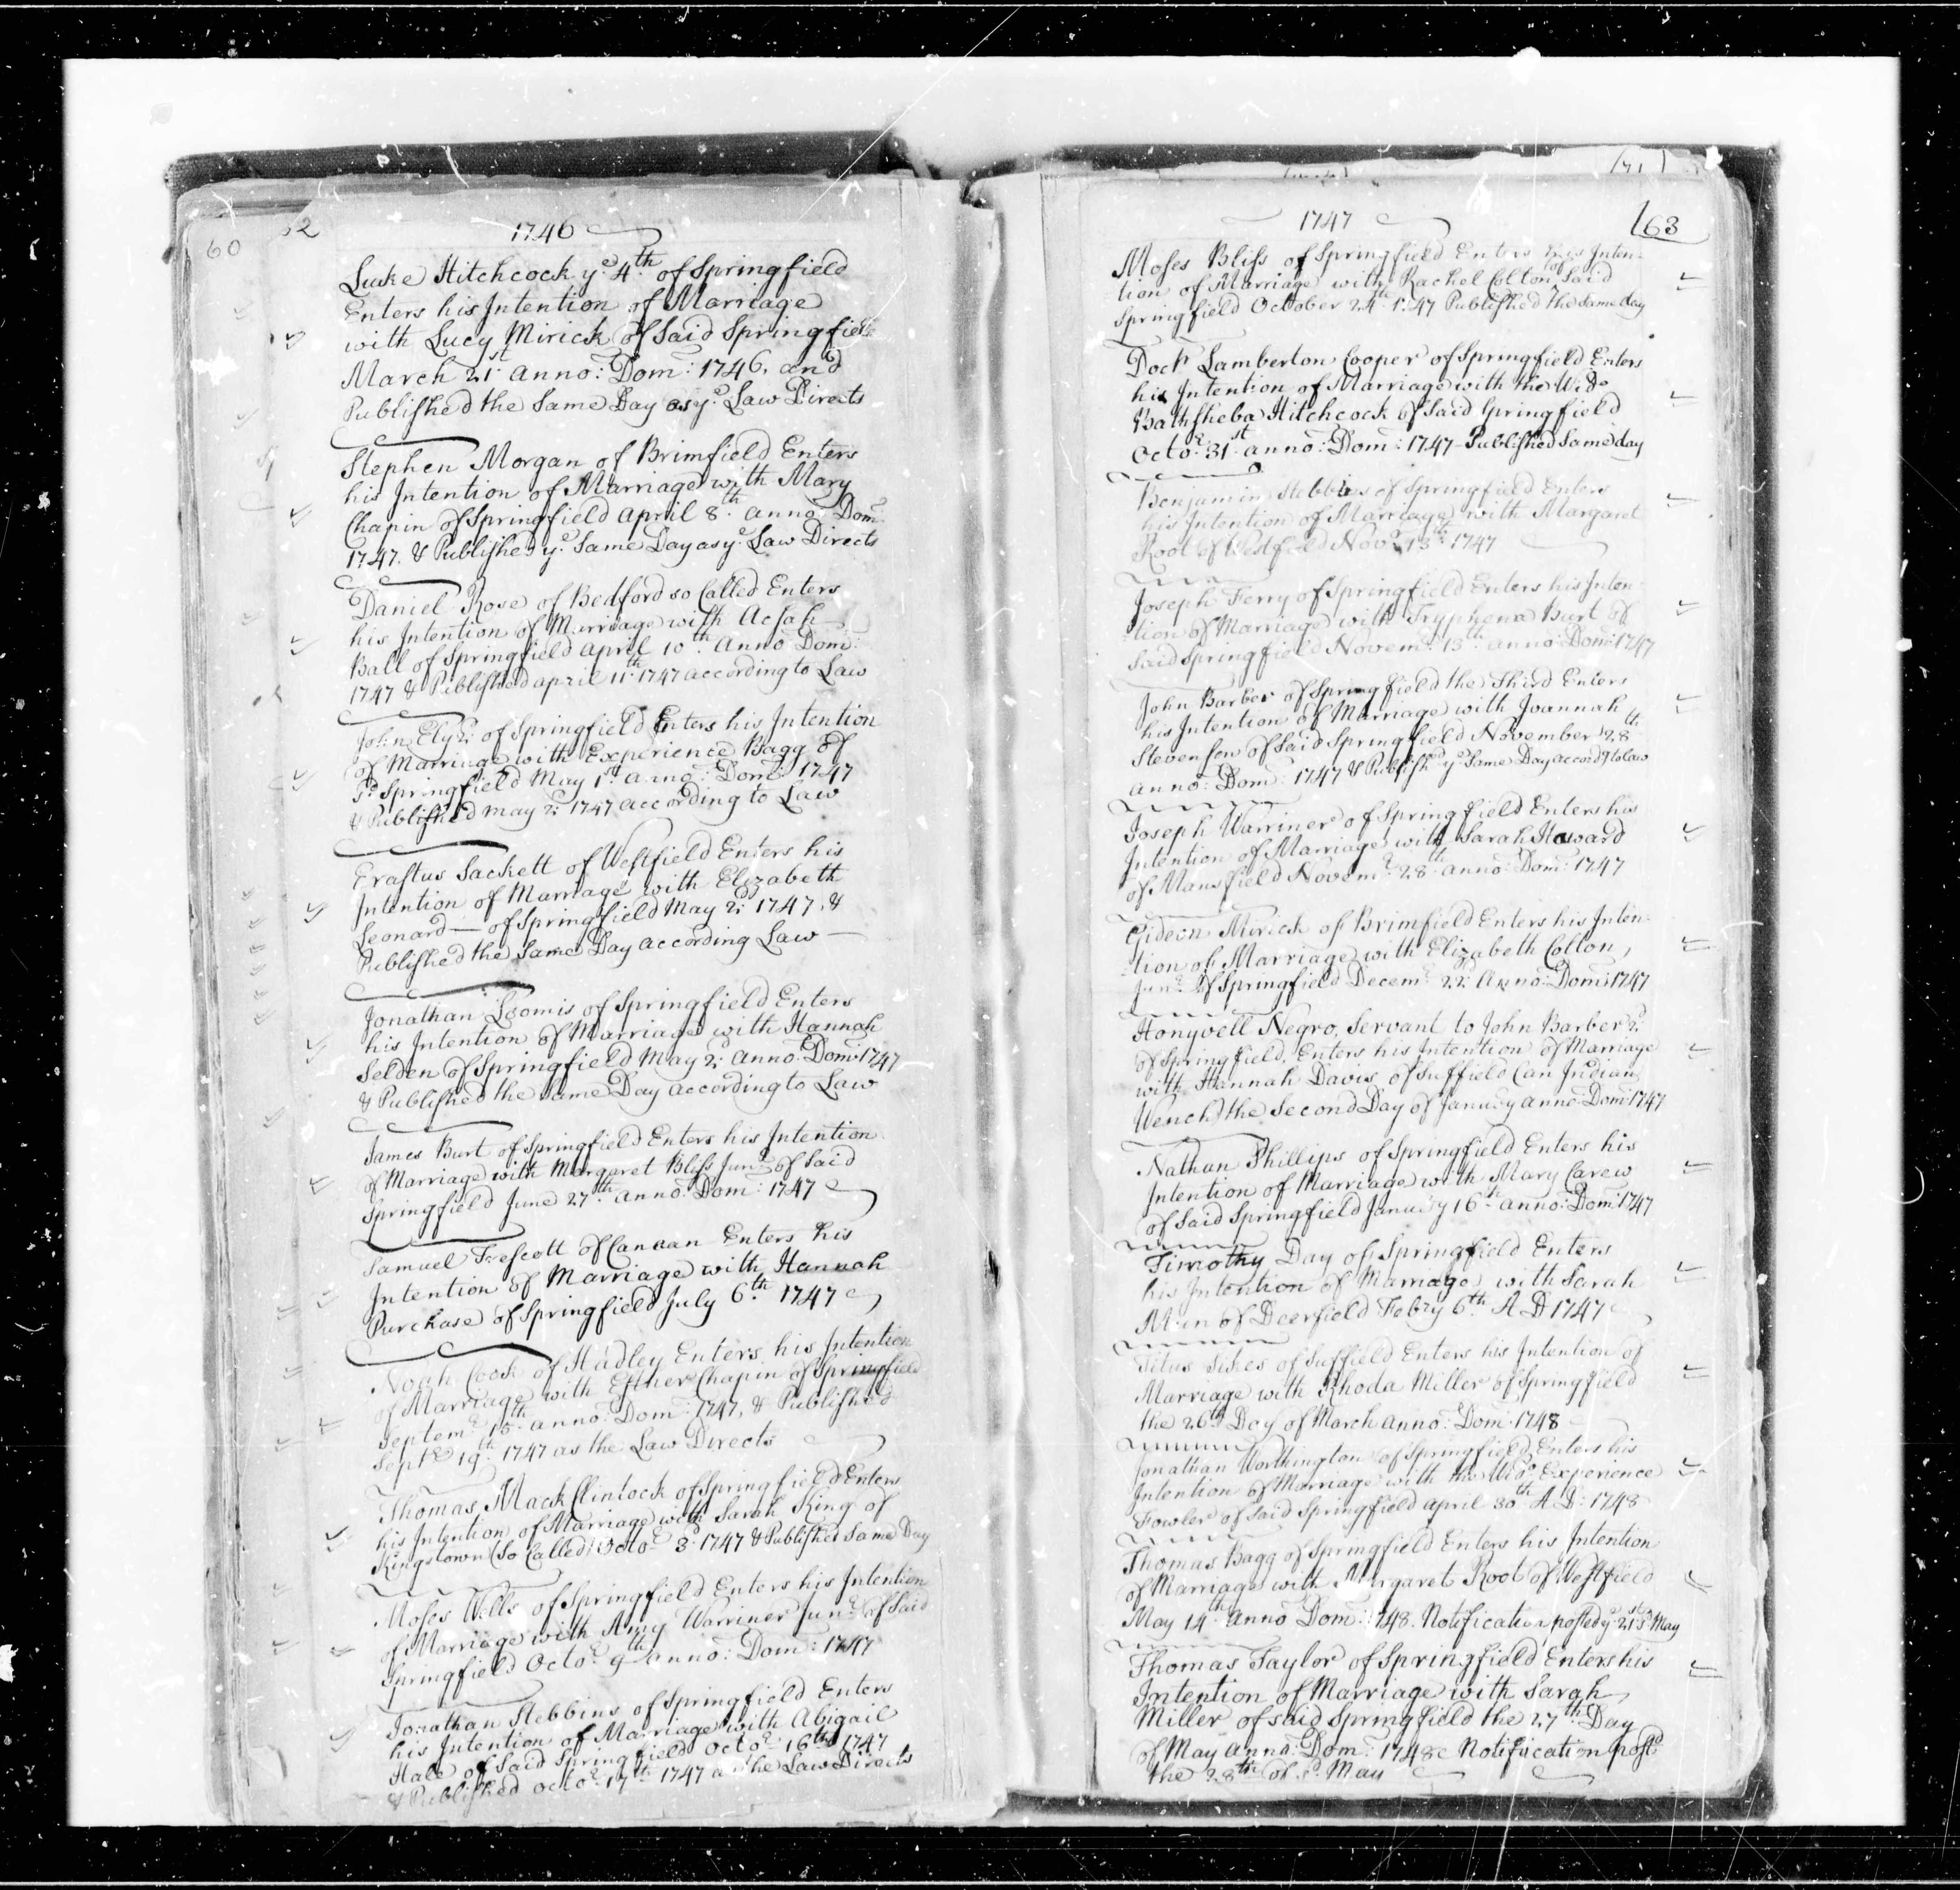 60
1746
Luke Hitchcock yᵉ 4th of Springfield
Enters his Intention of Marriage
with Lucy Mirick of Said Springfield
March 21st anno: Dom: 1746, and
Published the Same Day as yᵉ Law Directs
Stephen Morgan of Brimfield Enters
his Intention of Marriage with Mary
Chapin of Springfield april 8th anno Dom:
1747. & Published yᵉ Same Day as yᵉ Law Directs
Daniel Rose of Bedford so Called Enters
his Intention of Marriage with Acsah
Ball of Springfield april 10th Anno Dom:
1747 & Published april 11th 1747 according to Law
John Ely 2d of Springfield Enters his Intention
of Marriage with Experience Bagg of
sd Springfield May 1st anno: Dom: 1747
& Published may 2d 1747 according to Law
Erastus Sackett of Westfield Enters his
Intention of Marriage with Elizabeth
Leonard — of Springfield May 2d 1747, &
Published the Same Day according Law —
Jonathan Loomis of Springfield Enters
his Intention of Marriage with Hannah
Selden of Springfield May 2d anno: Dom: 1747
& Published the Same Day according to Law
James Burt of Springfield Enters his Intention
of Marriage with Margaret Bliss Junr of Said
Springfield June 27th anno: Dom: 1747
Samuel Trescott of Canaan Enters his
Intention of Marriage with Hannah
Purchase of Springfield July 6th 1747
Noah Cook of Hadley Enters his Intention
of Marriage with Esther Chapin of Springfield
Septemr 15th anno: Dom: 1747, & Published
Septr 19th 1747 as the Law Directs
Thomas Mackclintock of Springfield Enters
his Intention of Marriage with Sarah King of
Kingstown (So Called) Octor 3d 1747 & Published Same Day
Moses Wells of Springfield Enters his Intention
of Marriage with Amy Warriner Junr of Said
Springfield Octor 9th anno: Dom: 1747
Jonathan Stebbins of Springfield Enters
his Intention of Marriage with Abigail
Hale of Said Springfield Octor 16th 1747
& Published Octor 17th 1747 as the Law Directs
1747
163
Moses Bliss of Springfield Enters his Inten-
tion of Marriage with Rachel Colton of Said
Springfield October 24th 1747 Published the same day
Doctr Lamberton Cooper of Springfield Enters
his Intention of Marriage with the Wido
Bathsheba Hitchcock of Said Springfield
Octor 31st anno: Dom: 1747 - Published Same day
Benjamin Stebbins of Springfield Enters
his Intention of Marriage with Margaret
Root of Westfield Novr 13th 1747
Joseph Ferry of Springfield Enters his Inten
tion of Marriage with Tryphena Burt of
Said Springfield Novemr 13th anno: Dom: 1747
John Barber of Springfield the Third Enters
his Intention of Marriage with Joannah
Stevenson of Said Springfield November 28th
anno: Dom: 1747 & Publishd yᵉ Same Day accordg to law
Joseph Warriner of Springfield Enters his
Intention of Marriage with Sarah Howard
of Mansfield Novemr 28th anno: Dom: 1747
Gideon Mirick of Brimfield Enters his Inten-
tion of Marriage with Elizabeth Colton,
Junr of Springfield Decemr 22d Anno: Dom: 1747
Honyvell Negro, Servant to John Barber 2d
of Springfield, Enters his Intention of Marriage
with Hannah Davis of Suffield (an Indian
Wench) the Second Day of January anno: Dom: 1747
Nathan Phillips of Springfield Enters his
Intention of Marriage with Mary Carew
of Said Springfield January 16th anno: Dom: 1747
Timothy Day of Springfield Enters
his Intention of Marriage with Sarah
of Deerfield Febry 6th A D 1747
Titus Sikes of Suffield Enters his Intention of
Marriage with Rhoda Miller of Springfield
the 26th Day of March anno: Dom: 1748
Jonathan Worthington of Springfield Enters his
Intention of Marriage with the Wido Experience
Fowler of Said Springfield april 30th A D: 1748
Thomas Bagg of Springfield Enters his Intention
of Marriage with Margaret Root of Westfield
May 14th anno Dom: 1748. Notification posted yᵉ 21st sd May
Thomas Taylor of Springfield Enters his
Intention of Marriage with Sarah
Miller of said Springfield the 27th Day
of May anno: Dom: 1748 Notification postd
the 28th of sd May